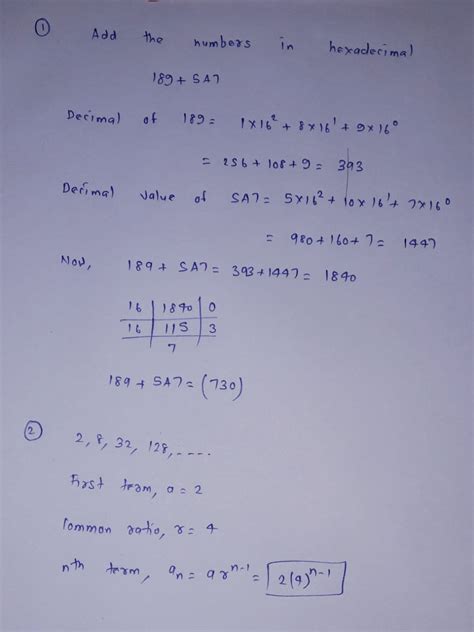 ① Add the numbers in hexadecimal
189 + 5A7
Decimal of 189 = 1×16² + 8×16¹ + 9×16⁰
= 256 + 108 + 9 = 393
Decimal value of 5A7 = 5×16² + 10×16¹ + 7×16⁰
= 980 + 160 + 7 = 1447
Now, 189 + 5A7 = 393 + 1447 = 1840
16 | 1840 | 0
16 | 115 | 3
7
189 + 5A7 = (730)
② 2, 8, 32, 128, .....
First term, a = 2
Common ratio, r = 4
nth term, aₙ = arⁿ⁻¹ = 2(4)ⁿ⁻¹